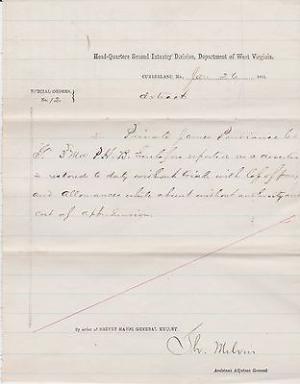 Head-Quarters Second Infantry Division, Department of West Virginia,
CUMBERLAND, MD., Jan 26 186
SPECIAL ORDERS,
No. 12
Extract
Private James
3 Md P.H.B. reported as a deserter
is restored to duty without trial with loss of pay
and allowances while absent without authority and
cost of apprehension
By order of BREVET MAJOR GENERAL KELLEY.
Tho. Melvin
Assistant Adjutant General